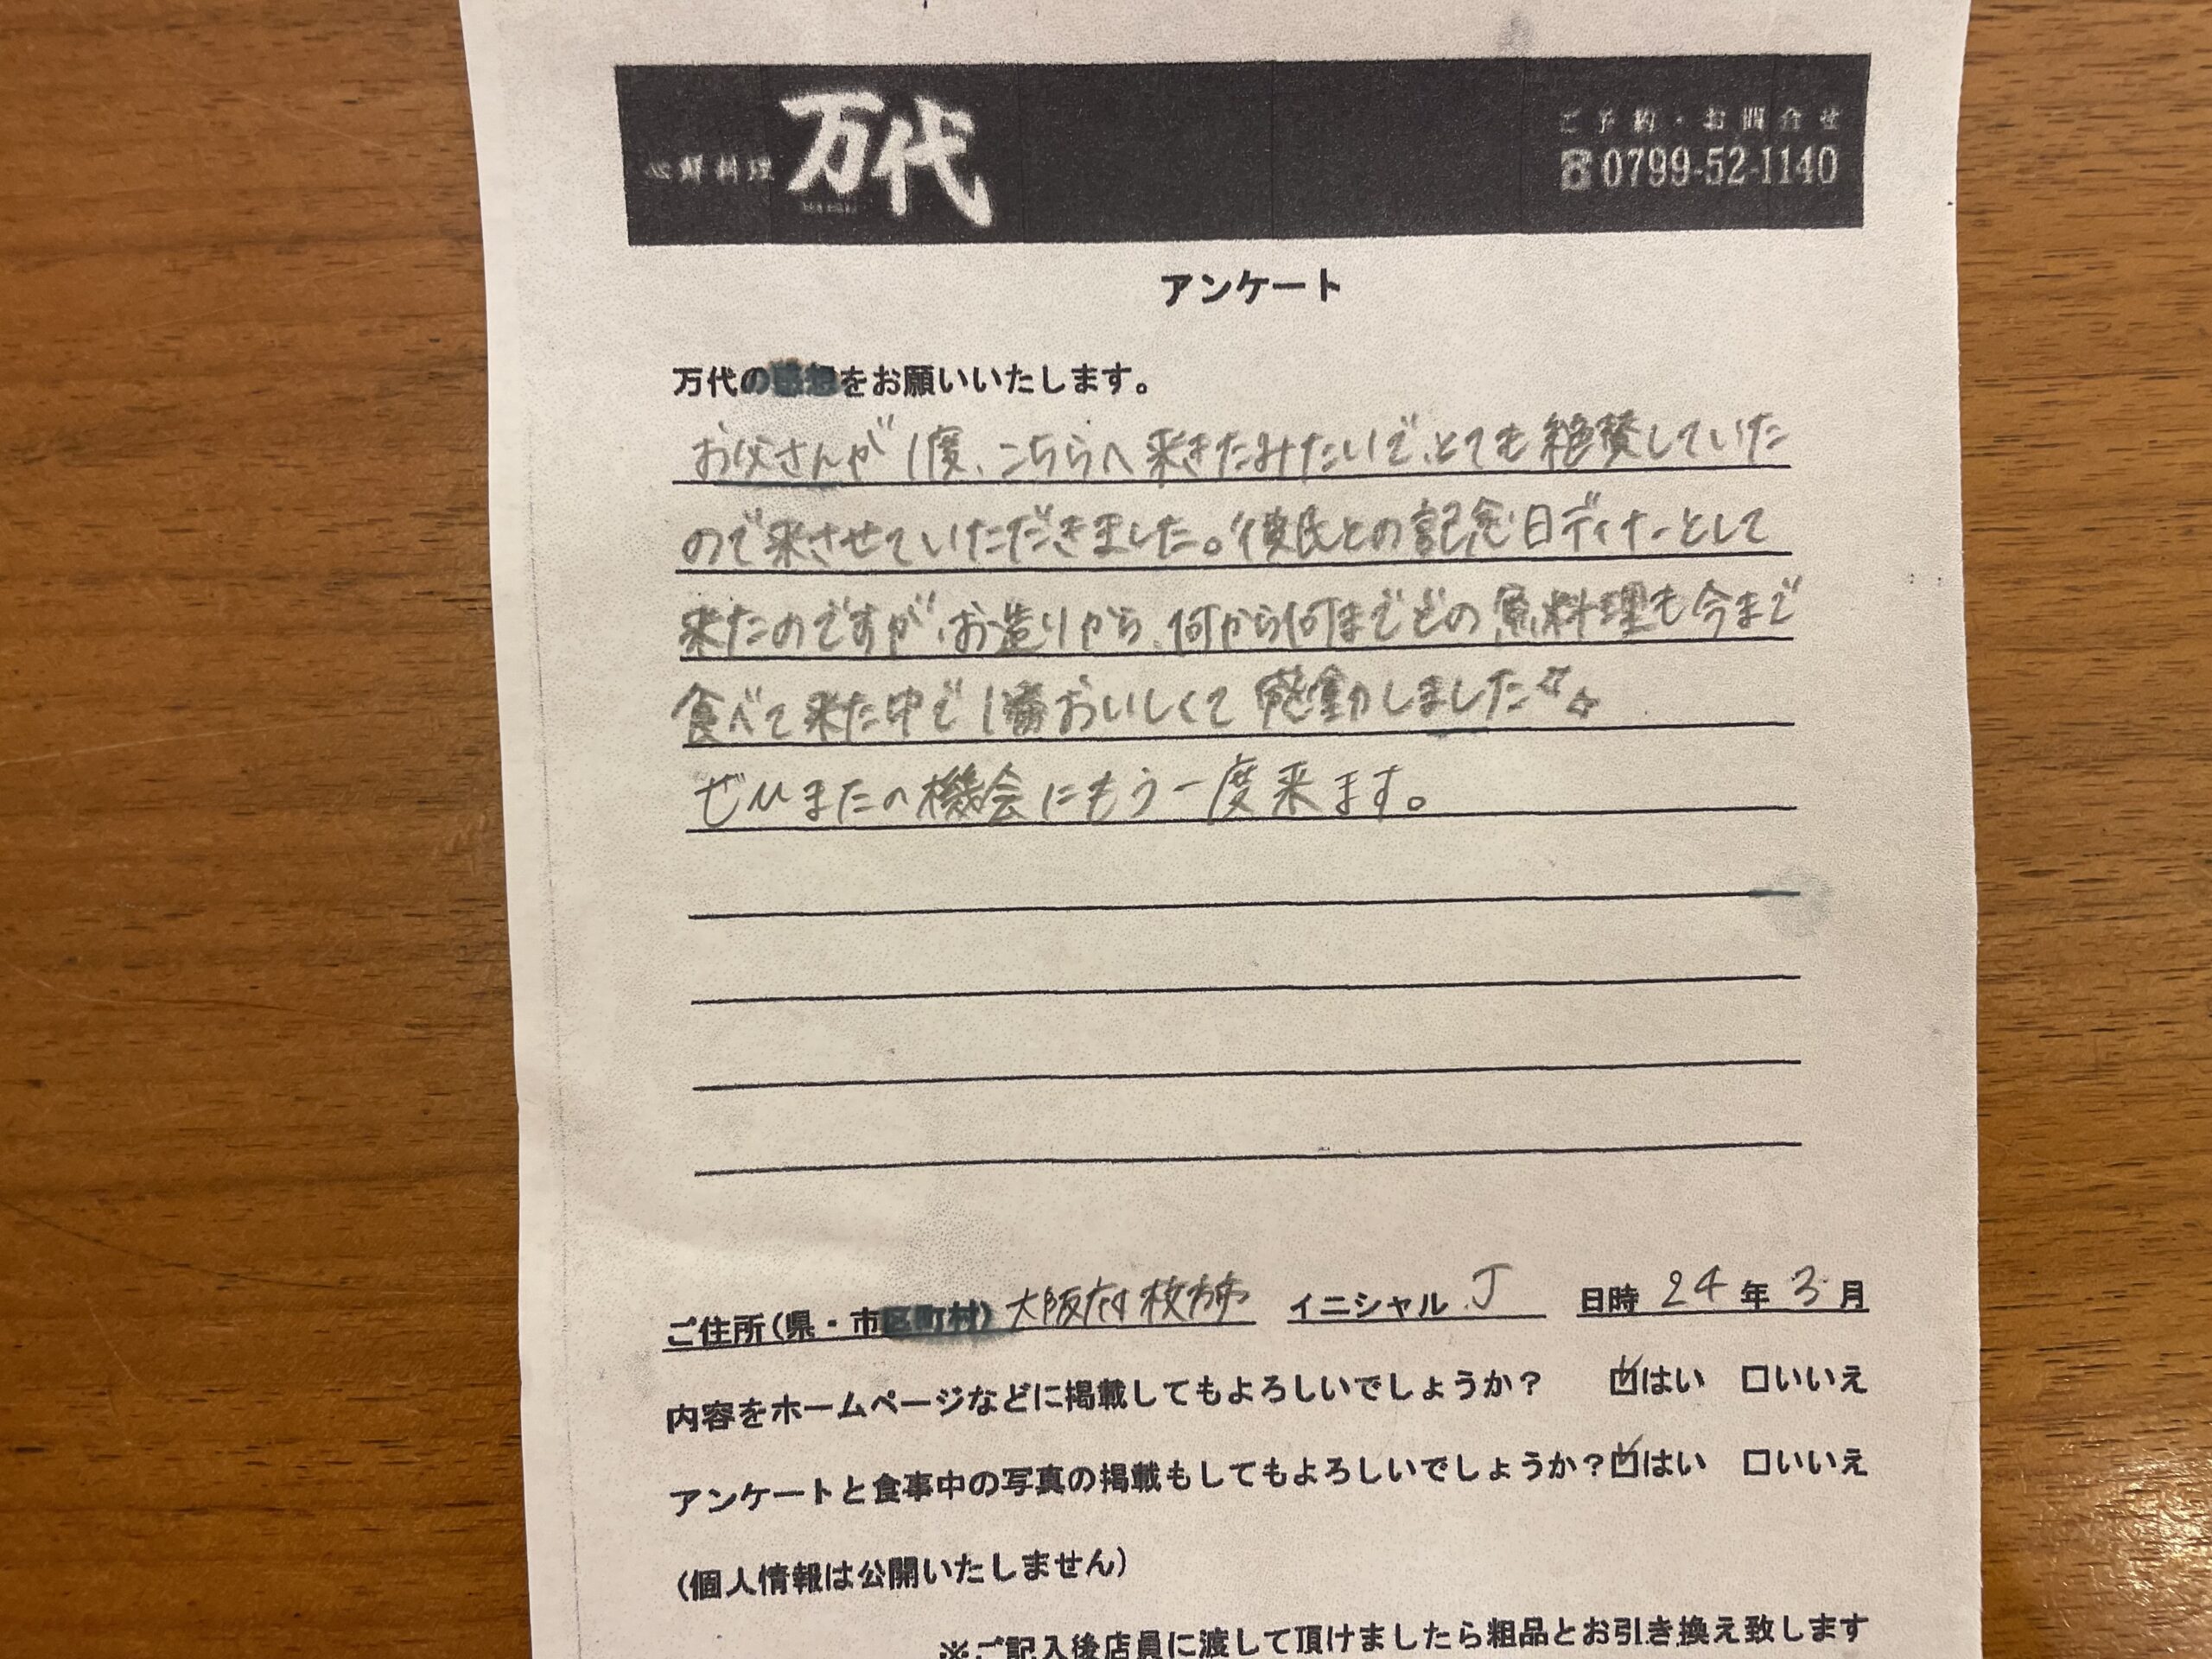 心鮮料理 万代
ご予約・お問合せ
☎0799-52-1140
アンケート
万代の感想をお願いいたします。
お父さんが1度、こちらへ来きたみたいで、とても絶賛していた
ので来させていただきました。彼氏との記念日ディナーとして
来たのですが、お造りから、何から何までどの魚料理も今まで
食べて来た中で1番おいしくて感動しました☆☆
ぜひまたの機会にもう一度来ます。
ご住所(県・市区町村) 大阪府枚方市 イニシャル J 日時 24年3月
内容をホームページなどに掲載してもよろしいでしょうか? ☑はい □いいえ
アンケートと食事中の写真の掲載もしてもよろしいでしょうか?☑はい □いいえ
(個人情報は公開いたしません)
※ご記入後店員に渡して頂けましたら粗品とお引き換え致します